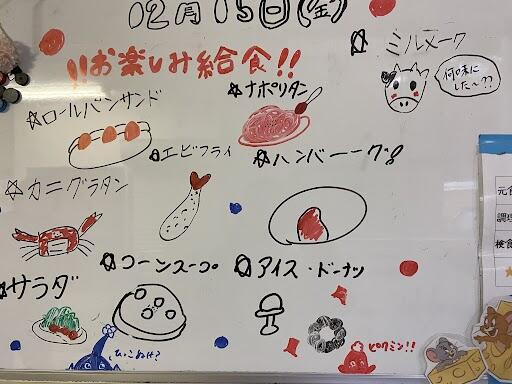 12月15日(金)
!!お楽しみ給食!!
☆ミルメーク
何味に
した〜??
☆ロールパンサンド
☆ナポリタン
☆エビフライ
☆ハンバーーグ!!
☆カニグラタン
☆コーンスープ
☆アイス・ドーナツ
☆サラダ
ピクミン!!
元食
調理
検食